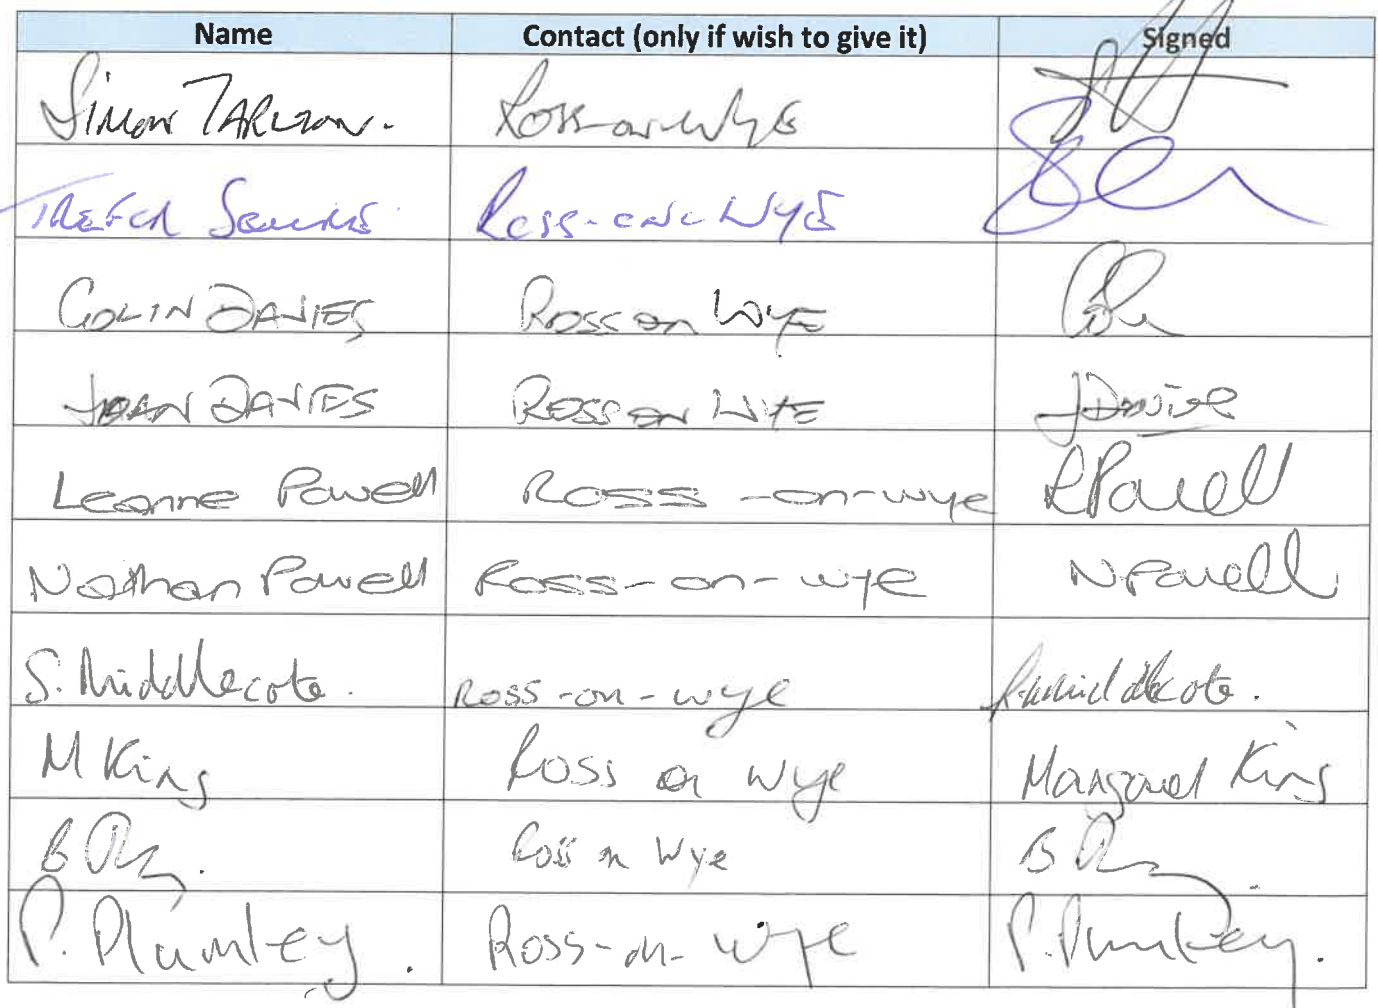 Name Contact (only if wish to give it) Signed
SIMON TARLTON. ROSS-on-WYE
TREFOR Ross-on-WYE
COLIN DAVIES ROSS ON WYE
JOAN DAVIES ROSS ON WYE JDavies
Leanne Powell ROSS -on-wye LPowell
Nathan Powell Ross-on-wye NPowell
S. Middlecote. ROSS-on-wye S.Middlecote.
M King Ross on Wye Margaret King
B Ross on Wye B
P. Plumley. Ross-on-Wye P. Plumley.